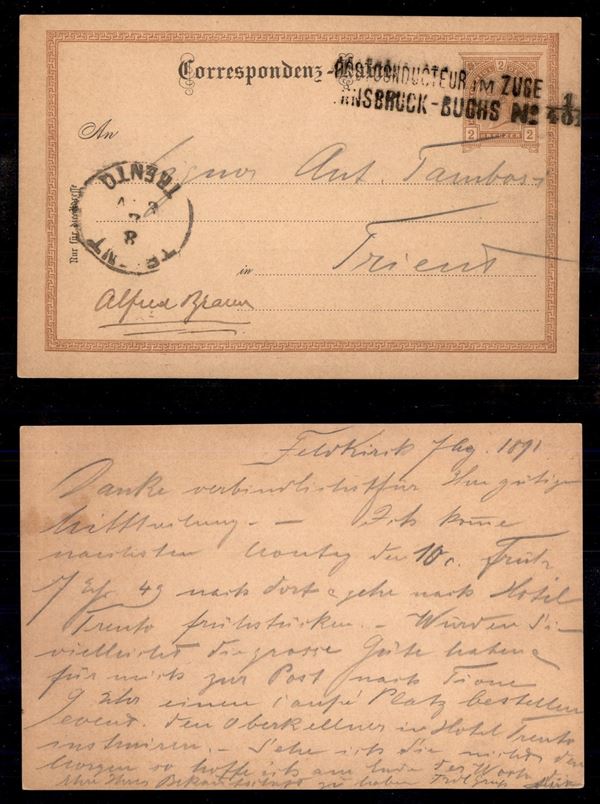 Correspondenz-
POSTCONDUCTEUR IM ZUGE
INNSBRUCK-BUCHS No
2
2 2
An
Signor Ant. Tambosi
TRENTO
8
TRIENT
Nur für die Adresse
in Trient
Alfred Braun
Feldkirch 1891
Danke verbindlichst für Ihre gütige
Mittheilung. — Ich kome
nächsten Montag den 10 c. Früh
7 Uhr 49 nach dort & gehe nach Hotel
Trento frühstücken. — Würden Sie
vielleicht die grosse Güte haben
für mich zur Post nach Tione
9 Uhr einen Coupé Platz bestellen
event. den Oberkellner in Hotel Trento
instruiren. — Sehe ich Sie nicht den
Morgen so hoffe ich am Ende der Woche
Ihre Bekanntschaft zu haben